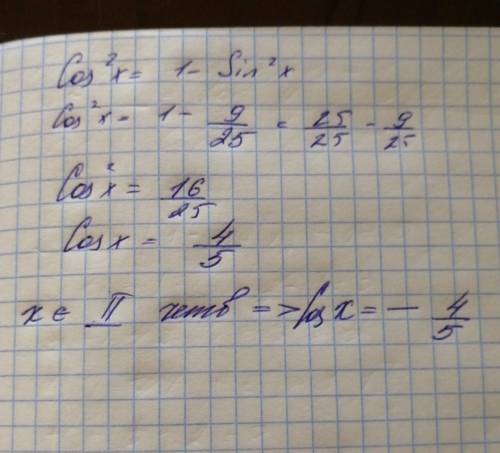 Cos²x = 1 - Sin²x
Cos²x = 1 - 9/25 = 25/25 - 9/25
Cos²x = 16/25
Cos x = 4/5
x ∈ II четв => Cos x = - 4/5